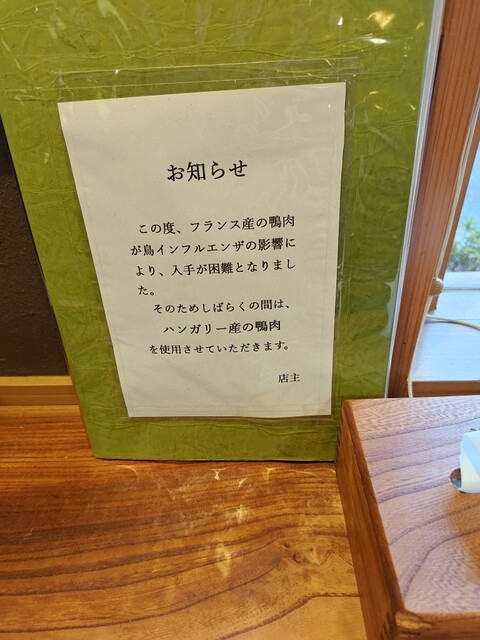 お知らせ
この度、フランス産の鴨肉
が鳥インフルエンザの影響に
より、入手が困難となりまし
た。
そのためしばらくの間は、
ハンガリー産の鴨肉
を使用させていただきます。
店主